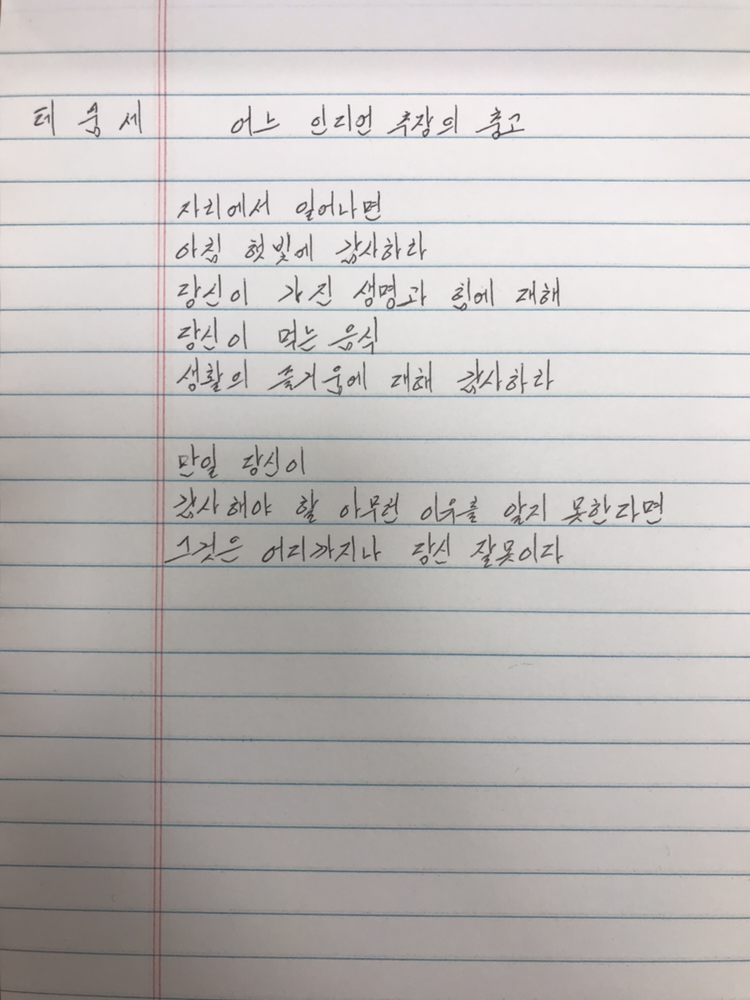 테쿰세 어느 인디언 추장의 충고
자리에서 일어나면
아침 햇빛에 감사하라
당신이 가진 생명과 힘에 대해
당신이 먹는 음식
생활의 즐거움에 대해 감사하라
만일 당신이
감사해야 할 아무런 이유를 알지 못한다면
그것은 어디까지나 당신 잘못이다